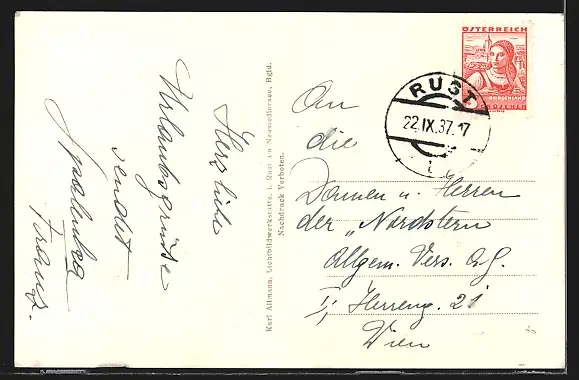 Herzliche
Urlaubsgrüsse
sendet
Franz.
Karl Altmann, Lichtbildwerkstätte, i. Rust am Neusiedlersee, Bgld.
Nachdruck Verboten.
ÖSTERREICH
BURGENLAND
GROSCHEN
RUST
22.IX.37.17
An
die
Damen u. Herren
der „Nordstern
Allgem. Vers. A.G.
I, Herreng. 21
Wien